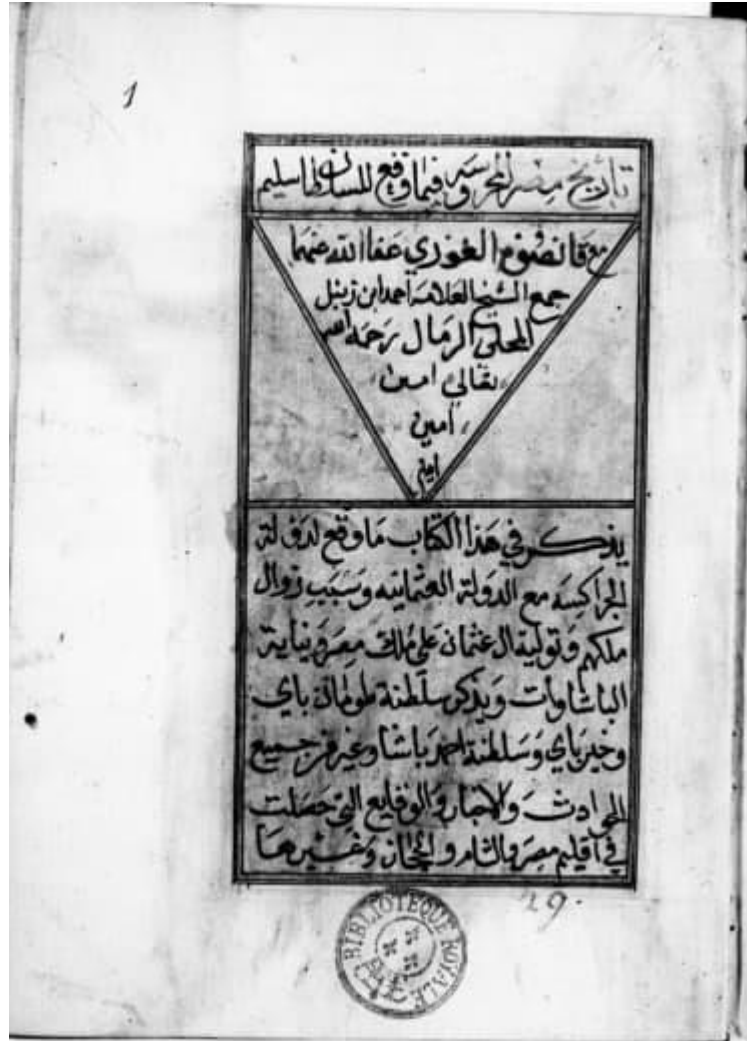 1
تاريخ مصر المحروسه فيما وقع للسلطان سليم
مع قانصوه الغوري عفا الله عنهما
جمع الشيخ العلامه احمد ابن زنبل
المحلي الرمال رحمه الله
تعالي امين
امين
امين
يذكر في هذا الكتاب ما وقع لدولة
الجراكسه مع الدولة العثمانيه وسبب زوال
ملكهم وتولية ال عثمان علي ملك مصر ونيابة
الباشاوات ويذكر سلطنة طومان باي
وخير باي وسلطنة احمد باشا وغيرهم جميع
الحوادث والاخبار والوقايع التي حصلت
في اقليم مصر والشام والحجاز وغيرها
29.
BIBLIOTEQUE ROYALE